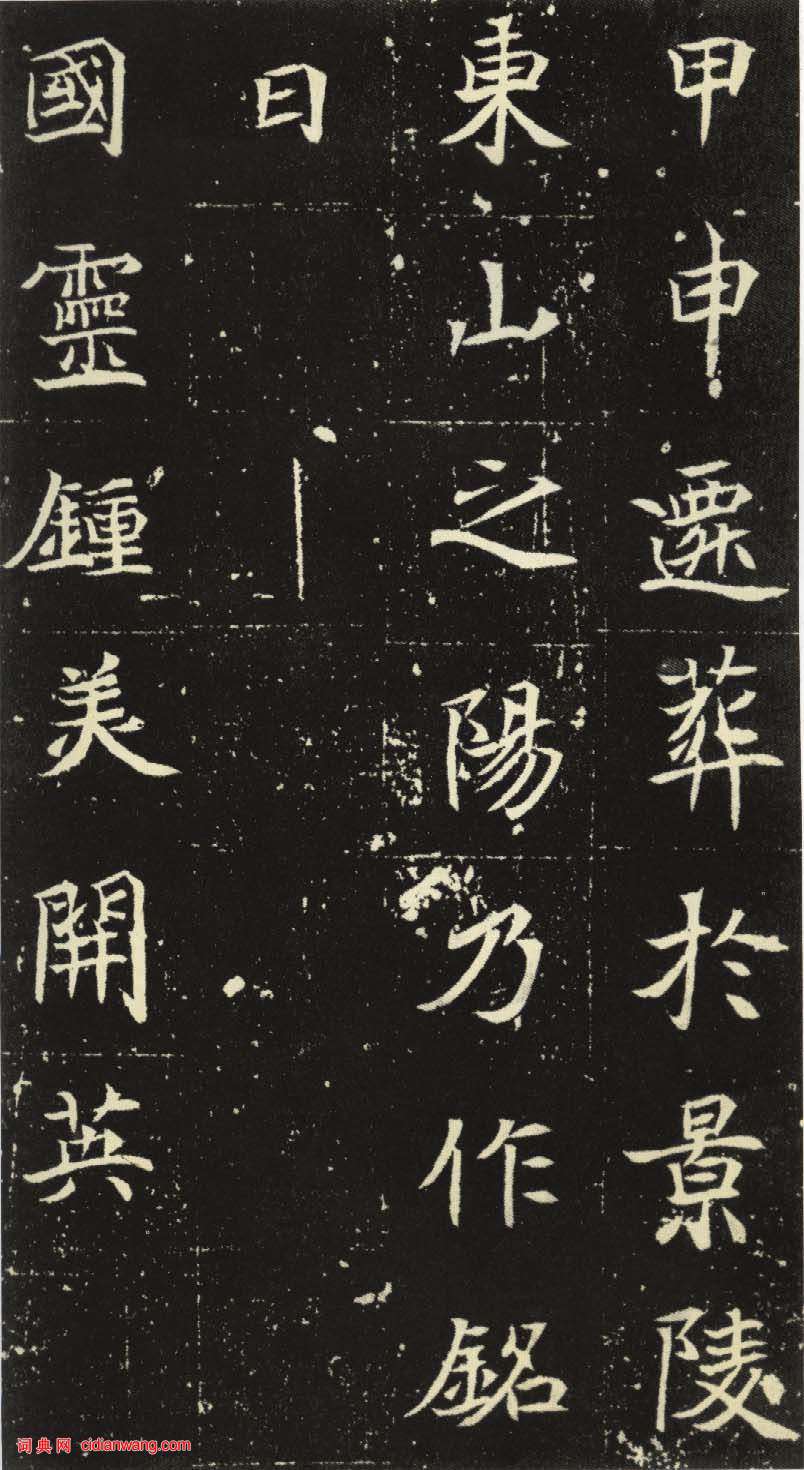 甲申遷葬於景陵
東山之陽乃作銘
曰
國靈鍾美開英
词典网 cidianwang.com